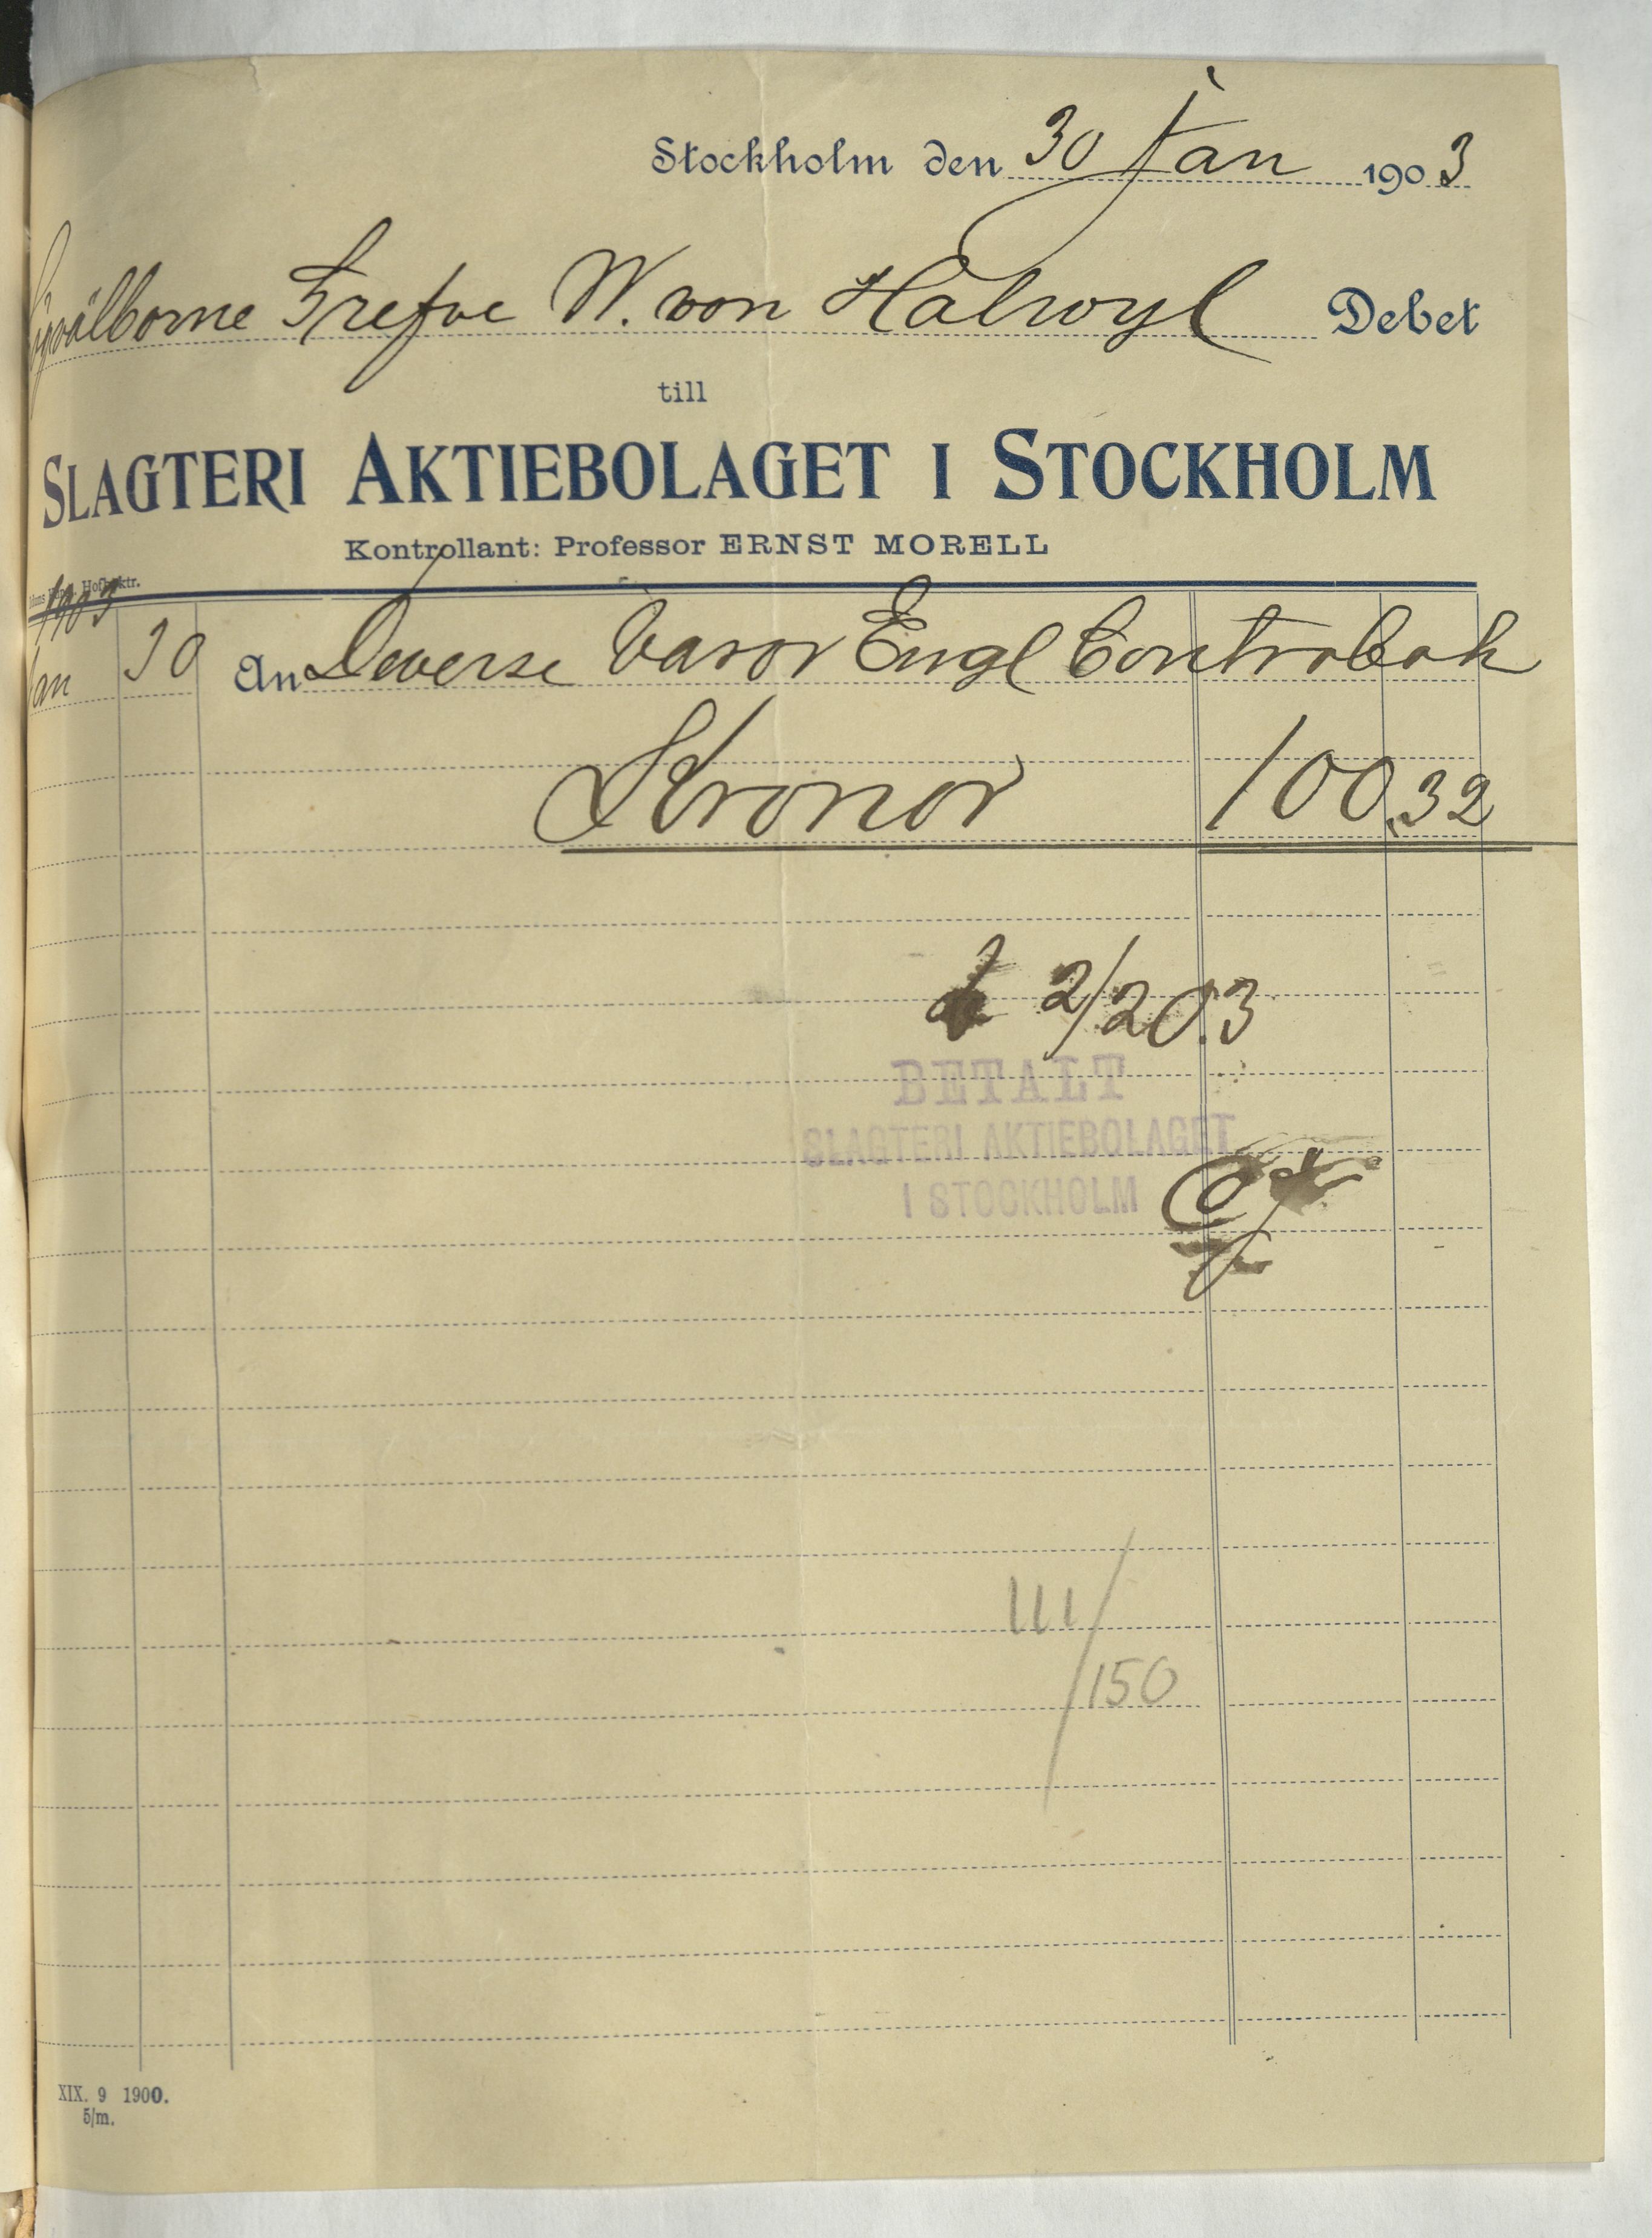 Stockholm den 30 Jan 1903
Högvälborne Grefve W. von Halwyl Debet
till
SLAGTERI AKTIEBOLAGET I STOCKHOLM
Kontrollant: Professor ERNST MORELL
1903
Jan 30 An Diverse Varor Engl Contrabok
Kronor 100,32
2/2 03
BETALT
SLAGTERI AKTIEBOLAGET
I STOCKHOLM
111/150
XIX. 9 1900.
5/m.